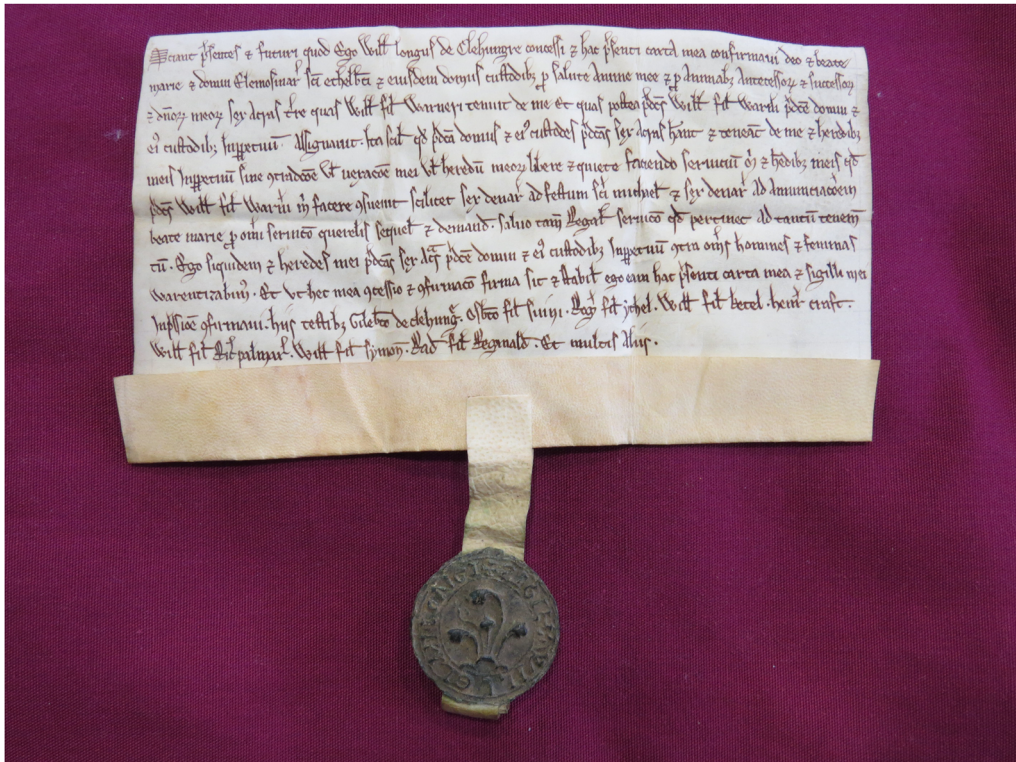 Sciant p̃sentes ⁊ futuri quod Ego Witt longus de Clehungre concessi ⁊ hac p̃senti carta mea confirmaui deo ⁊ beate
marie ⁊ domui Elemosinar̃ sc̃i ethelb̃ti ⁊ eiusdem domus custodib; ꝑ salute Anime mee ⁊ ꝑ Animab; Antecessoꝝ ⁊ successoꝝ
⁊ dñoꝝ meoꝝ sex Acras t̃re quas Witt fil Warneri tenuit de me Et quas postea p̃dc̃us Witt fil Warñ p̃dc̃e domui ⁊
ei⁹ custodib; Inꝑpetuũ Assignauit. Ita scil qđ p̃dc̃a domus ⁊ ei⁹ custodes p̃dc̃as sex Acras h̃ant ⁊ teneãt de me ⁊ heredib;
meis Inꝑpetuũ sine ꝯtradc̃one uel uexac̃one mei ut heredũ meoꝝ libere ⁊ quiete faciendo seruiciũ m̃ ⁊ h̃edib; meis qđ
p̃dc̃us Witt fil Warñ m̃ facere ꝯsueuit scilicet sex denar̃ ad festum sc̃i michael ⁊ sex denar̃ Ad Annunciac̃oem
beate marie ꝑ om̃i seruic̃o querelis sequel ⁊ demand̃. saluo tam̃ Regal seruic̃o qđ pertinet Ad tantũ tenem̃
tũ. Ego siquidem ⁊ heredes mei p̃dc̃as sex Ac̃s p̃dc̃e domui ⁊ ei⁹ custodib; Inꝑpetuũ ꝯtra om̃s homines ⁊ feminas
warentizabim⁹. Et vt hec mea ꝯcessio ⁊ ꝯfirmac̃o firma sit ⁊ stabil ego eam hac p̃senti carta mea ⁊ sigilli mei
Inp̃ssiõe ꝯfirmaui. hiis testib; Gileb̃to de clehung̃. Osb̃to fil. Rog̃ fil ythel. Witt fil ketel. henr̃ craft.
Witt fil Ric̃ palmar̃. Witt fil symoñ. Rad̃ fil Reginald. Et multis Aliis.